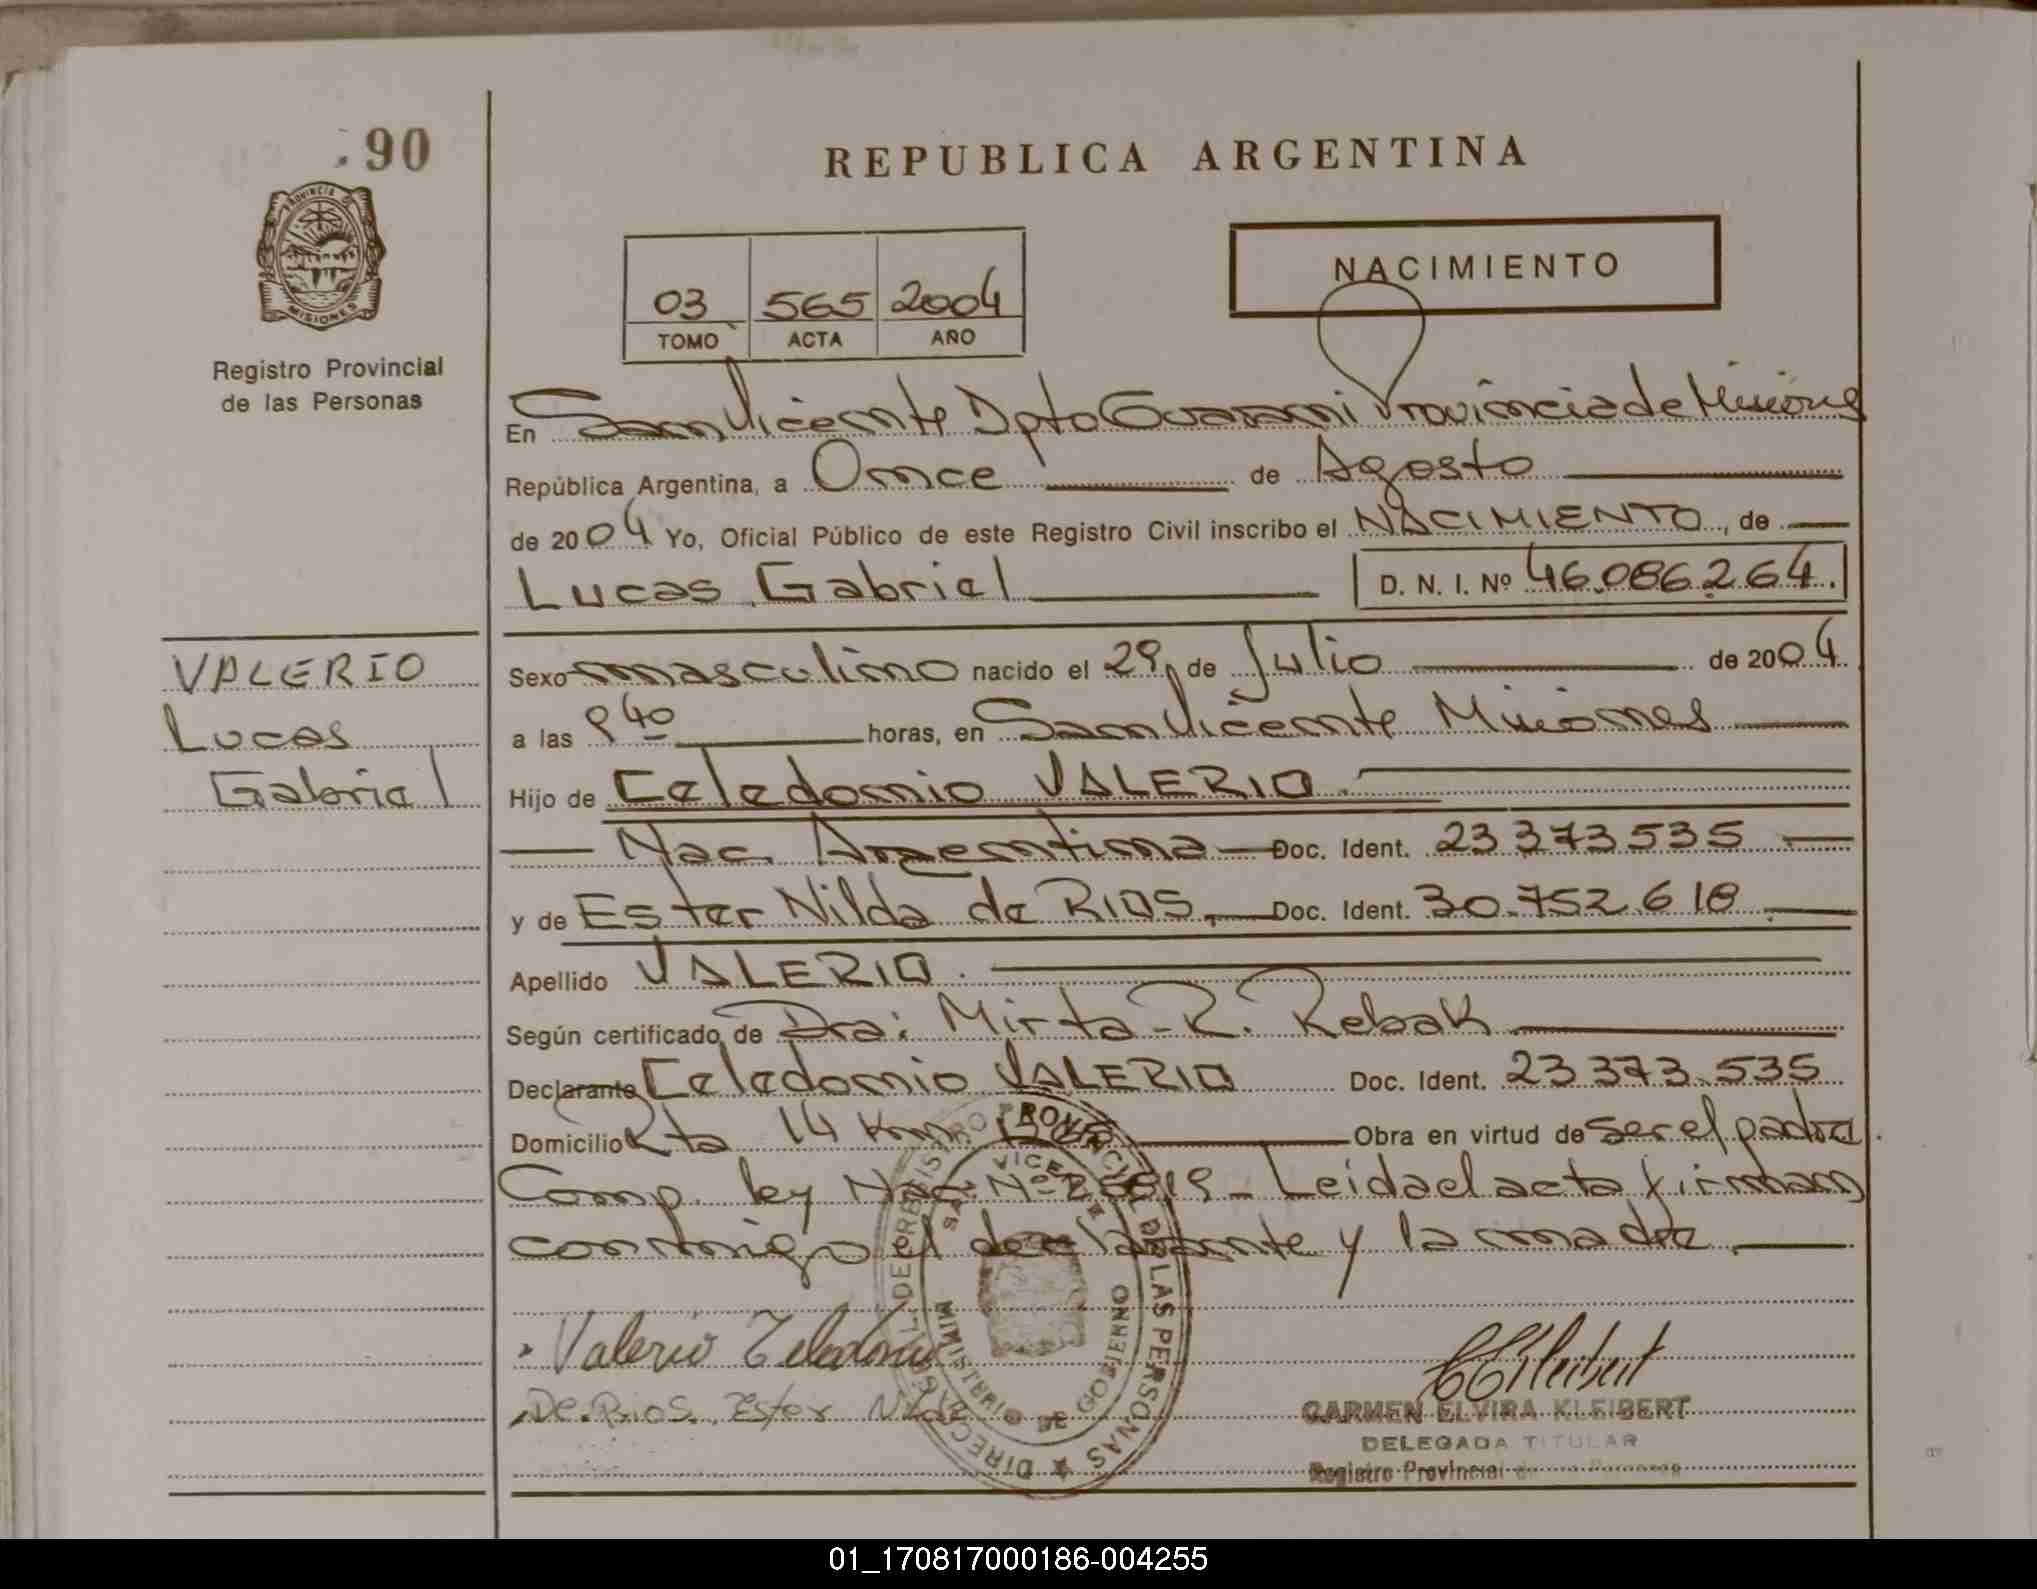 90
REPUBLICA ARGENTINA
PROVINCIA DE
MISIONES
Registro Provincial
de las Personas
03 565 2004
TOMO ACTA AÑO
NACIMIENTO
En San Vicente Dpto Guarani Provincia de Misiones
República Argentina, a Once de Agosto
de 2004 Yo, Oficial Público de este Registro Civil inscribo el NACIMIENTO, de
Lucas Gabriel D. N. I. Nº 46.086.264.
VALERIO
Lucas
Gabriel
Sexo masculino nacido el 29 de Julio de 2004
a las 9 40 horas, en San Vicente Misiones
Hijo de Celedonio VALERIO.
Nac. Argentina Doc. Ident. 23 373 535
y de Ester Nilda de RIOS, Doc. Ident. 30.752.618
Apellido VALERIO.
Según certificado de Dra: Mirta R. Rebak
Declarante Celedonio VALERIO Doc. Ident. 23 373.535
Domicilio Rta 14 Km Obra en virtud de ser el padre
Comp. ley Nac Nº - Leida el acta firman
conmigo el declarante y la madre
Valerio Celedonio
De Rios Ester Nilda
DIRECC GRAL. DEL REGISTRO PROVINCIAL DE LAS PERSONAS
MINISTERIO DE GOBIERNO
SAN VICENTE
CARMEN ELVIRA KLEIBERT
DELEGADA TITULAR
Registro Provincial de las Personas
01_170817000186-004255